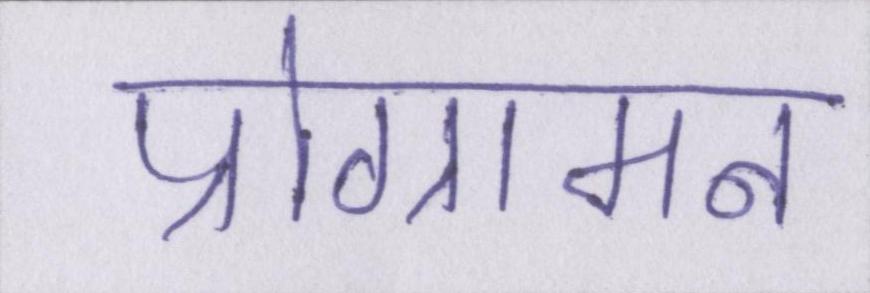 प्रोग्रामन